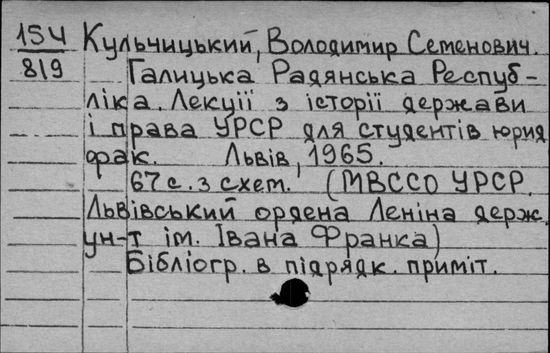 154
819
Кульчицький, Володимир Семенович.
Галицька Радянська Респуб-
ліка. Лекції з історії держави
і права УРСР для студентів юрид
фак. Львів, 1965.
67 с. з схем. (МВССО УРСР.
Львівський ордена Леніна держ.
ун-т ім. Івана Франка)
Бібліогр. в підрядк. приміт.